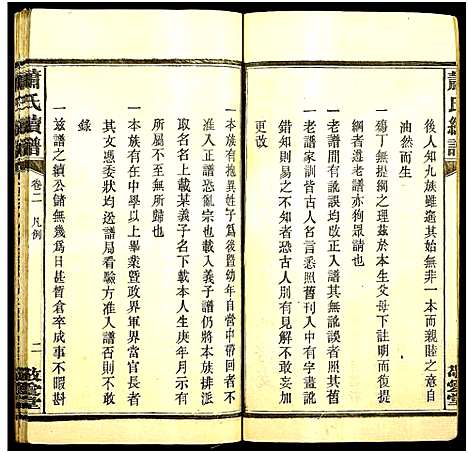 蕭氏續譜
後人知九族雖遠其始無非一本而親睦之意自
油然而生
一殤丁無提獨之理茲於本生父母下註明而提
綱者遵老譜亦猶行古之道也
一老譜間有訛誤均改正入譜其無訛誤者照其舊
一老譜家訓皆古人名言悉照舊刊入中有字畫訛
錯知則長之不知者恐古人別有見解不敢妄加
更改
一本族有撫異姓子為後暨幼年自營中帶回者不
准入正譜恐亂宗也載入義子譜仍將本族排派
取名名上載某義子名下載本人生庚年月示有
所屬不至無所歸也
一本族有在中學以上畢業暨政界軍界當官長者
其文憑委狀均送譜局看驗方准入譜否則不敢
錄
一茲譜之續公儲無幾為日甚暫倉卒成事不暇斟
蕭氏續譜
卷二
凡例
二
敬愛堂